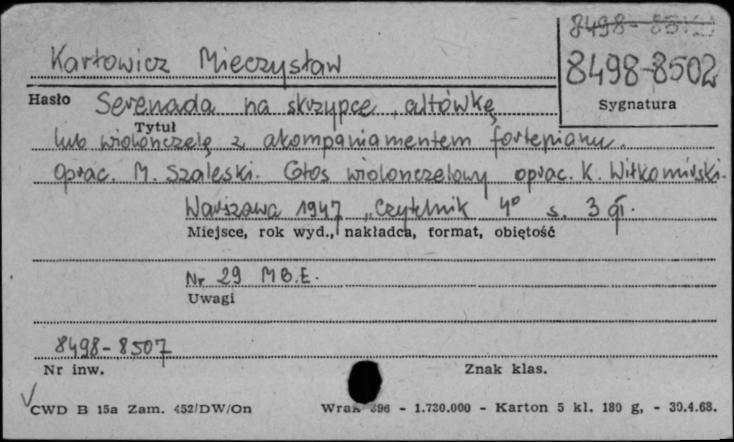 Karłowicz Mieczysław
8498-8502
Hasło Serenada na skrzypce, altówkę
Sygnatura
Tytuł
lub wiolonczelę z akompaniamentem fortepianu.
Oprac. M. Szaleski. Głos wiolonczelowy oprac. K. Wiłkomirski.
Warszawa 1947 "Czytelnik 4° s. 3 gł.
Miejsce, rok wyd., nakładca, format, objętość
Nr 29 M B.E.
Uwagi
8498-8507
Nr inw.
Znak klas.
CWD B 15a Zam. 452/DW/On
396 - 1.730.000 - Karton 5 kl. 180 g, - 30.4.68.